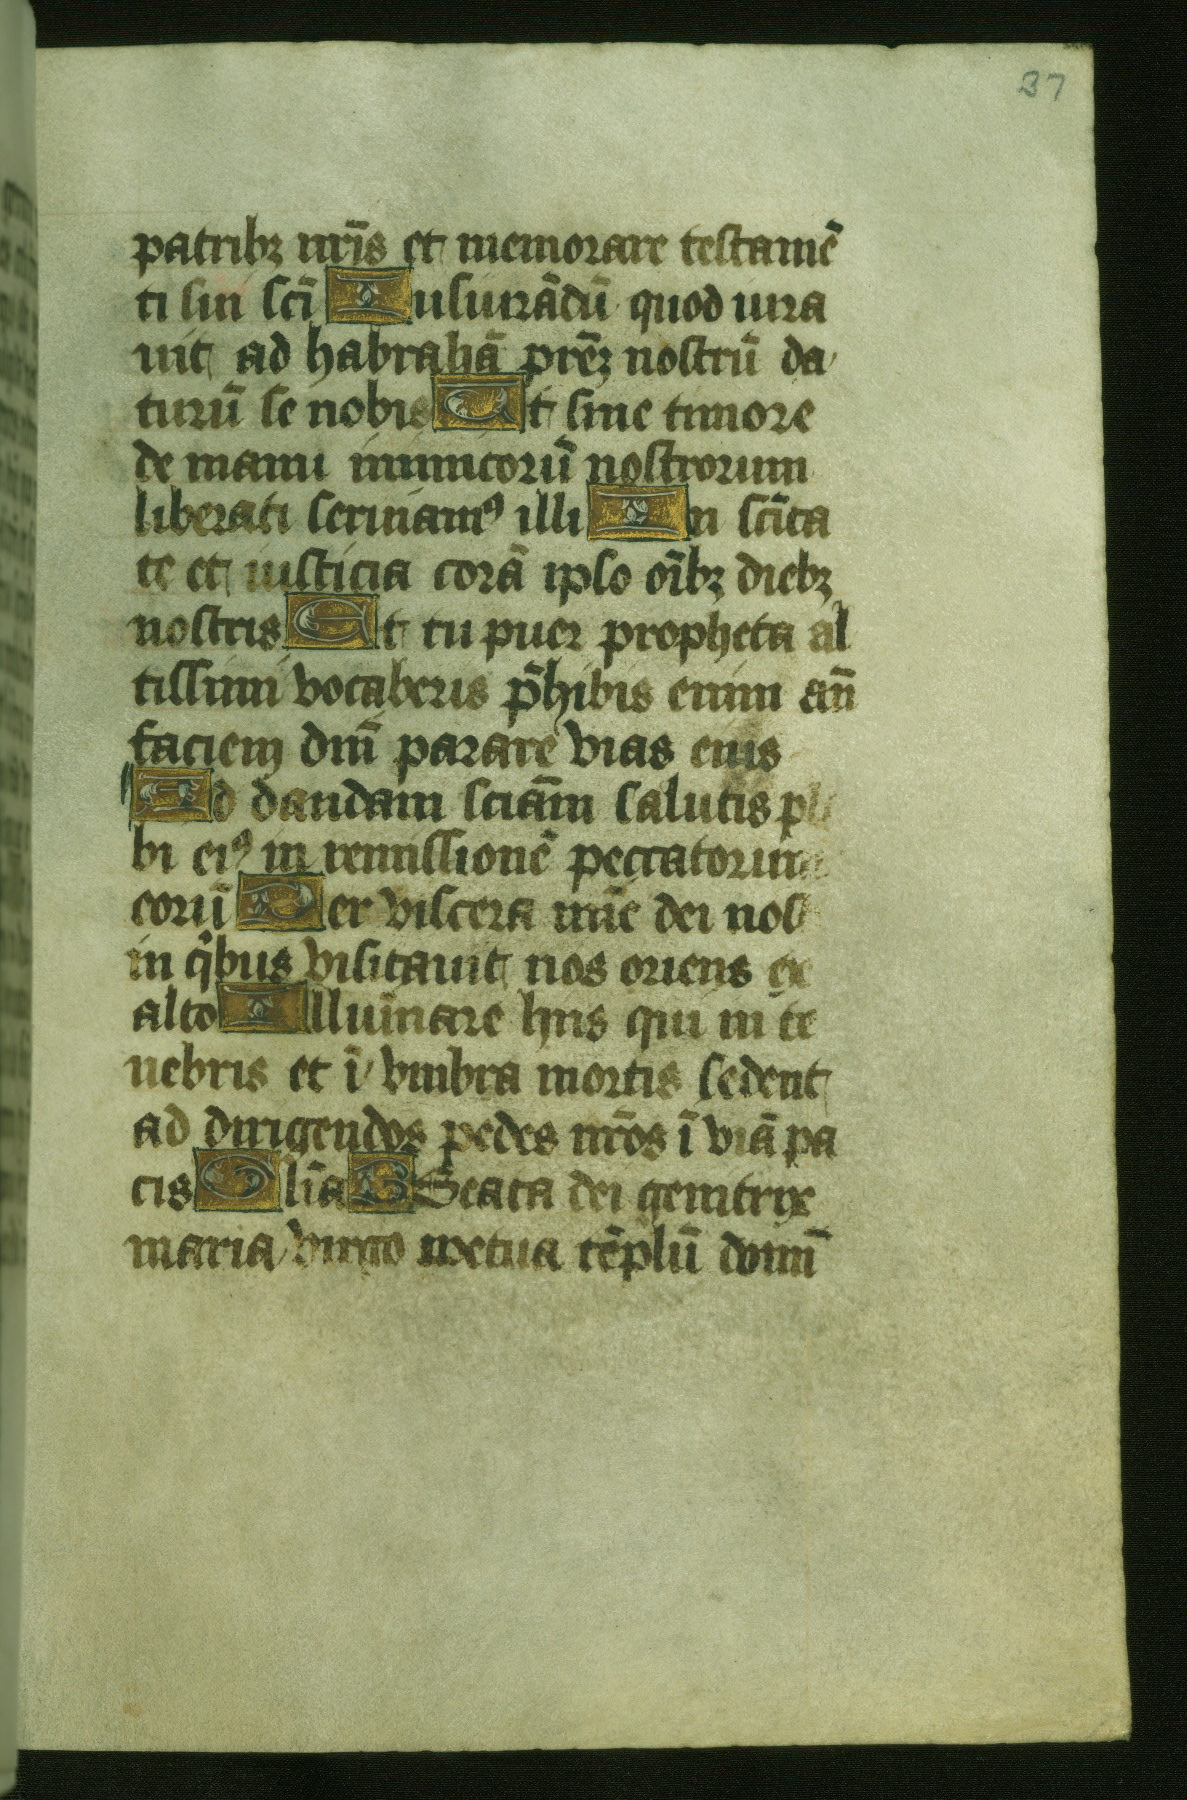 37
patribꝫ nr̄is et memorare testamē
ti sui sc̄i Iusiurādū quod iura
uit ad habrahā prēꝫ nostrū da
turū se nobis Ut sine timore
de manu inimicorū nostrorum
liberati seruiamꝰ illi In sc̄ita
te et iusticia corā ipso oībꝫ diebꝫ
nostris Et tu puer propheta al
tissimi vocaberis p̄hibis enim an̄
faciem dn̄i parare vias eius
Ad dandam sciām salutis ple
bi eiꝰ in remissionē peccatorum
eorū Per viscera mīe dei nos
in qͥbus visitauit nos oriens ex
alto Illuminare hiis qui in te
nebris et ī vmbra mortis sedent
ad dirigendos pedes nr̄os ī viā pa
cis Glīa B Beata dei genitrix
maria virgo tua tēplū domī